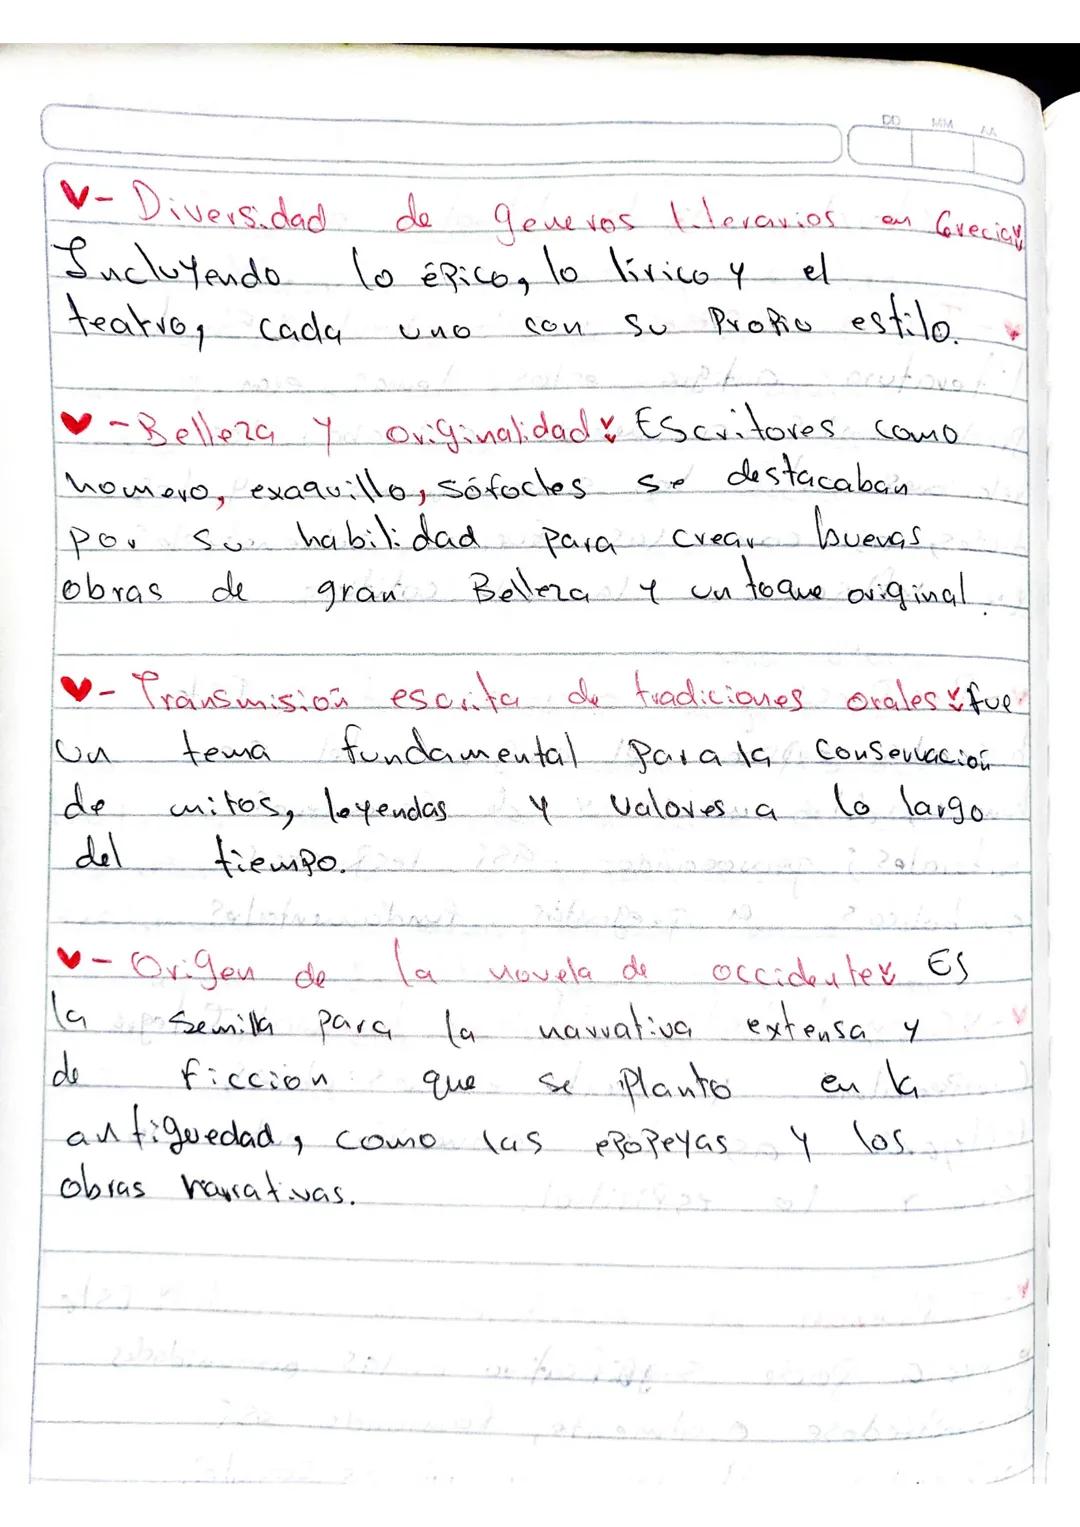 DD MM AA
- Diversidad de generos literarios en Grecia
Incluyendo lo épico, lo lírico y el
teatro, cada uno con su Propio estilo.
- Belleza y originalidad Escritores como
homero, exaquillo, sófocles se destacaban
por su habilidad para crear buenas
obras de gran Belleza y un toque original.
- Transmisión escrita de tradiciones orales fue
un tema fundamental para la conservación
de mitos, leyendas y valores a lo largo
del tiempo.
- Origen de la novela de occidente Es
la semilla para la narrativa extensa y
de ficcion que se planto en la
antiguedad, como las epopeyas y los
obras narrativas.